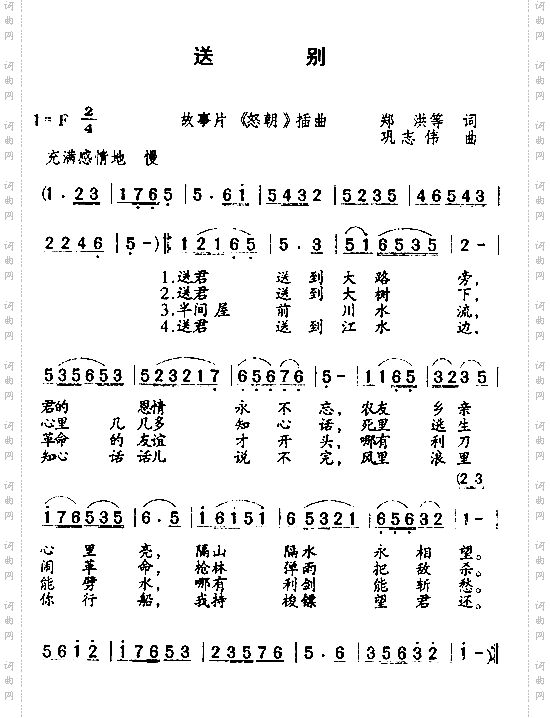 送 别
1=F 2/4 故事片《怒潮》插曲 郑 洪等 词
巩志伟 曲
充满感情地 慢
(1·23 | 1765 | 5·61 | 5432 | 5235 | 46543 |
2246 | 5-) |: 12165 | 5·3 | 516535 | 2- |
1.送君 送到大路 旁,
2.送君 送到大树 下,
3.半间屋 前 川水 流,
4.送君 送到江水 边,
535653 | 523217 | 65676 | 5- | 1165 | 3235 |
君的 恩情 永不忘, 农友 乡亲
心里 几几多 知心话, 死里 逃生
革命 的友谊 才开头, 哪有 利刀
知心 话话儿 说不完, 风里 浪里
(23
176535 | 6·5 | 16151 | 65321 | 65632 | 1- |
心里 亮, 隔山 隔水 永相 望。
闹革 命, 枪林 弹雨 把敌 杀。
能劈 水, 哪有 利剑 能斩 愁。
你行 船, 我持 梭镖 望君 还。
5612 | 17653 | 23576 | 5·6 | 35632 | 1-) :|
词曲网